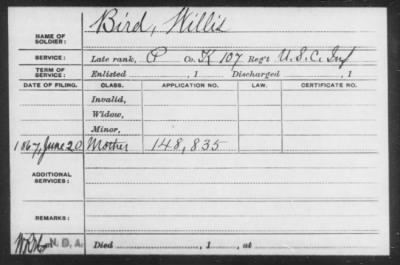 NAME OF SOLDIER: Bird, Willis
SERVICE: Late rank, P Co. K 107 Reg't U.S.C. Inf
TERM OF SERVICE: Enlisted , 1 Discharged , 1
DATE OF FILING. CLASS. APPLICATION NO. LAW. CERTIFICATE NO.
Invalid,
Widow,
Minor,
1867, June 20 Mother 148,835
ADDITIONAL SERVICES:
REMARKS:
N.D.A. Died , 1 , at